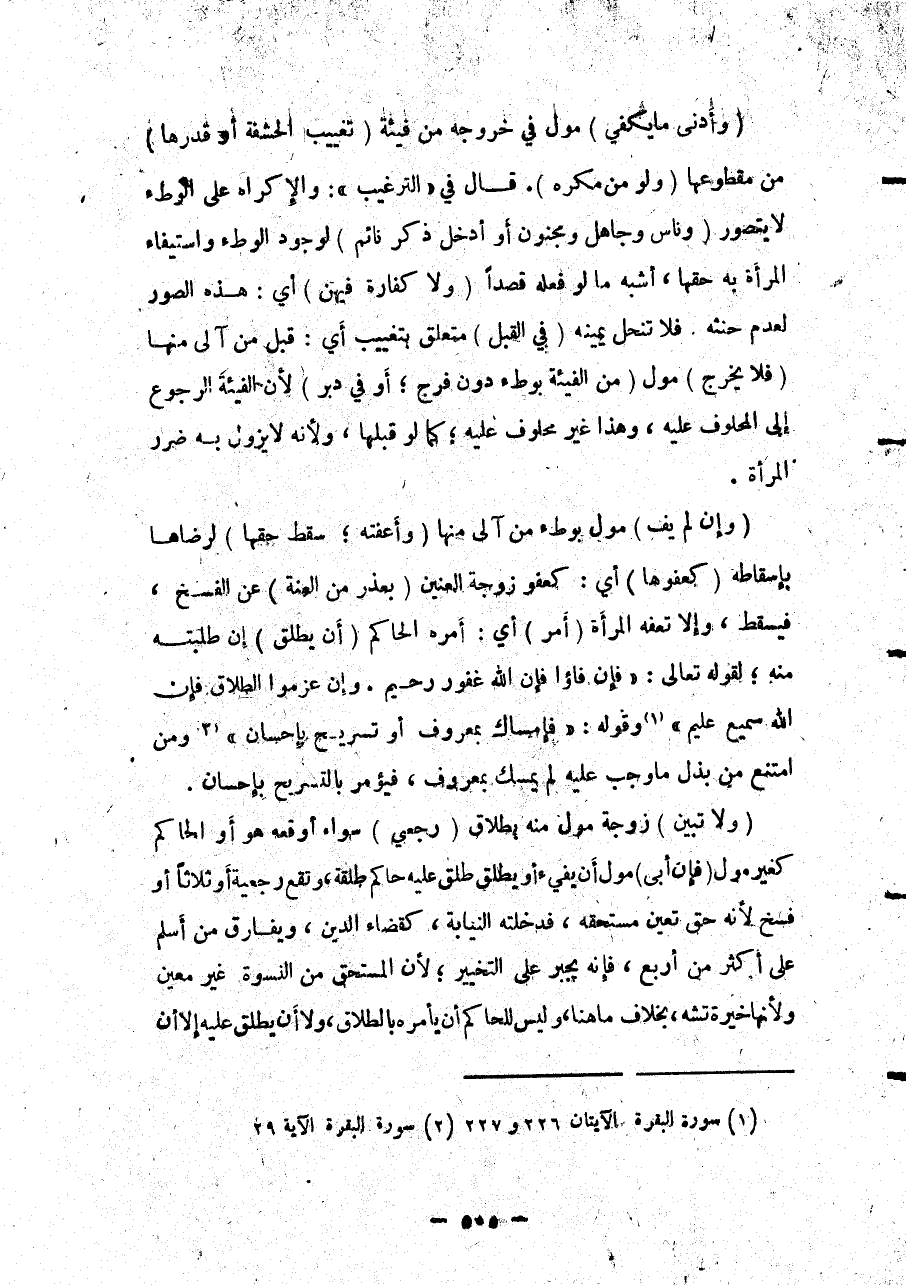 ( وأدنى مايكفي ) مول في خروجه من فيئة ( تغييب الحشفة أو قدرها )
من مقطوعها ( ولو من مكره ) . قــال في « الترغيب » : والإكراه على الوطء
لايتصور ( وناس وجاهل ومجنون أو أدخل ذكر نائم ) لوجود الوطء واستيفاء
المرأة به حقها ، أشبه ما لو فعله قصداً ( ولا كفارة فيهن ) أي : هــذه الصور
لعدم حنثه . فلا تنحل يمينه ( في القبل ) متعلق بتغييب أي : قبل من آلى منهـا
( فلا يخرج ) مول ( من الفيئة بوطء دون فرج ؛ أو في دبر ) لأن الفيئة الرجوع
إلى المحلوف عليه ، وهذا غير محلوف عليه ؛ كما لو قبلها ، ولأنه لايزول بــه ضرر
المرأة .
( وإن لم يف ) مول بوطء من آلى منها ( وأعفته ؛ سقط حقها ) لرضاهـا
بإسقاطه ( كعفوها ) أي : كعفو زوجة العنين ( بعذر من العنة ) عن الفسـخ ،
فيسقط ، وإلا تعفه المرأة ( أمر ) أي : أمره الحاكم ( أن يطلق ) إن طلبتــه
منه ؛ لقوله تعالى : « فإن فاؤا فإن الله غفور رحـيم . وإن عزموا الطلاق فإن
الله سميع عليم » (١) وقوله : « فإمساك بمعروف أو تسريـح بإحسان » (٢) ومن
امتنع من بذل ماوجب عليه لم يمسك بمعروف ، فيؤمر بالتسريح بإحسان .
( ولا تبين ) زوجة مول منه بطلاق ( رجعي ) سواء أوقعه هو أو الحاكم
كغير مول ( فإن أبى ) مول أن يفيء أو يطلق طلق عليه حاكم طلقة ، وتقع رجعية أو ثلاثاً أو
فسخ لأنه حق تعين مستحقه ، فدخلته النيابة ، كقضاء الدين ، ويفـارق من أسلم
على أكثر من أربع ، فإنه يجبر على التخيير ؛ لأن المستحق من النسوة غير معين
ولأنها خيرة تشه ، بخلاف ماهنا ، وليس للحاكم أن يأمره بالطلاق ، ولا أن يطلق عليه إلا أن
(١) سورة البقرة الآيتان ٢٢٦ و ٢٢٧ (٢) سورة البقرة الآية ٢٩
— ٥٠٥ —